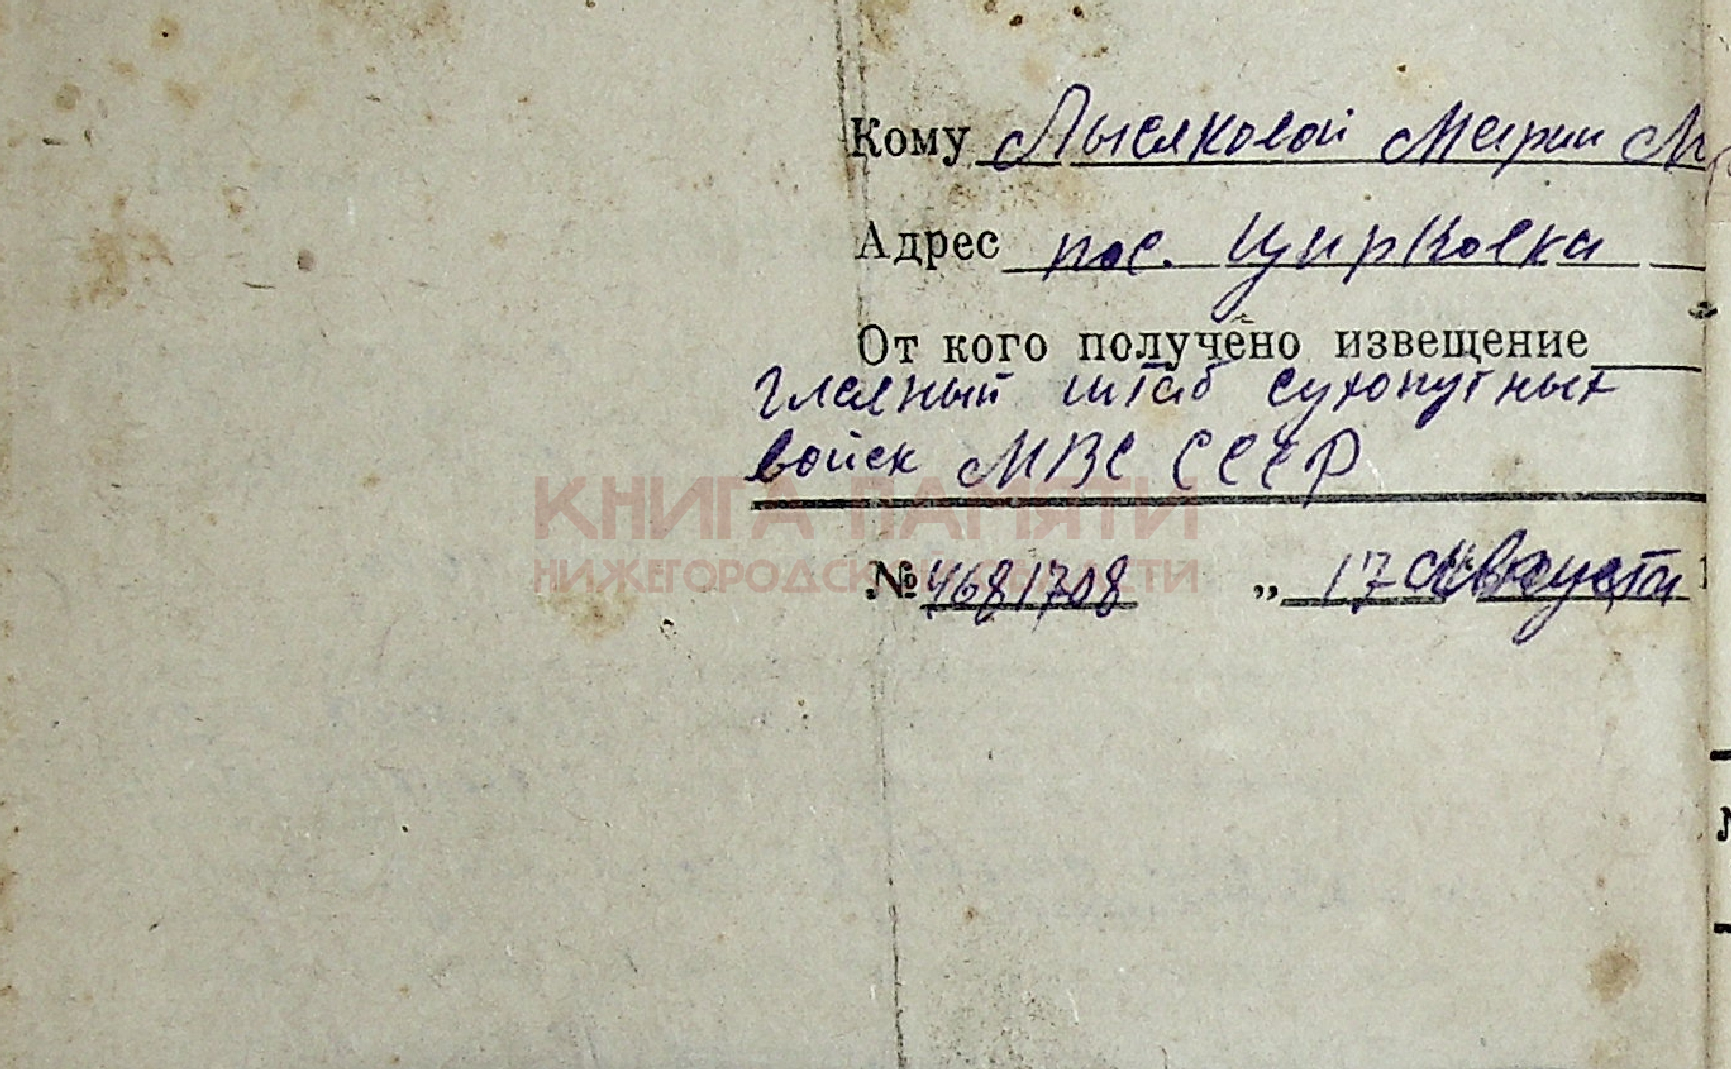 Кому Лысяковой Марии М
Адрес пос. Цирковка
От кого получено извещение
главный штаб сухопутных
войск МВС СССР
КНИГА ПАМЯТИ
НИЖЕГОРОДСКОЙ ОБЛАСТИ
№ 4681708 „ 17 августа